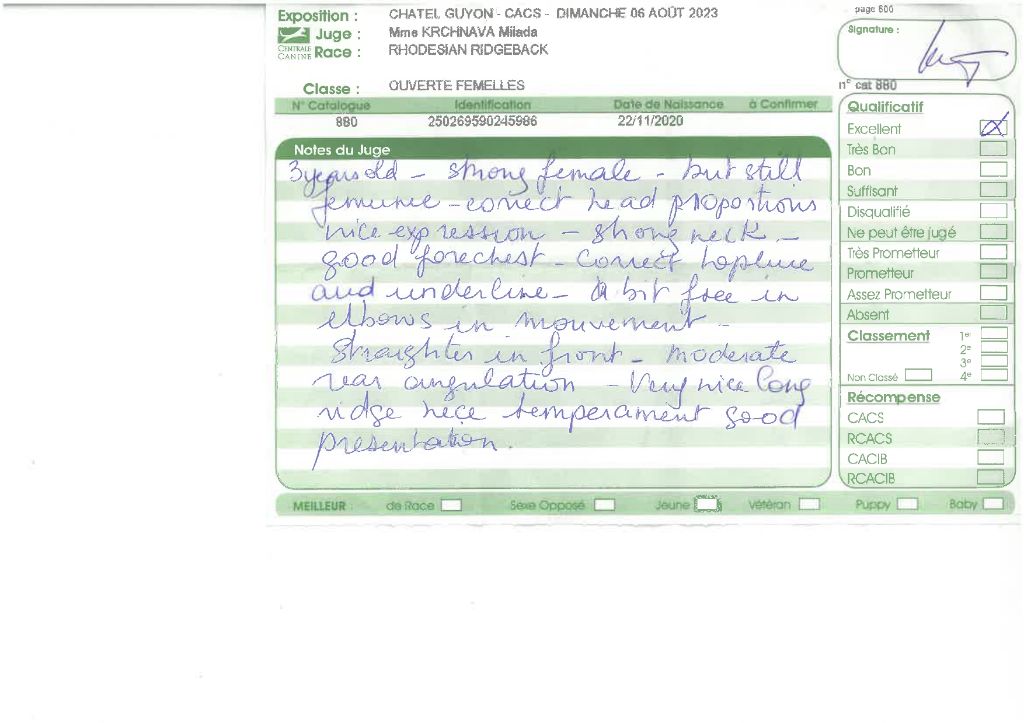 Exposition : CHATEL GUYON - CACS - DIMANCHE 06 AOÛT 2023
Juge : Mme KRCHNAVA Milada
CENTRALE CANINE Race : RHODESIAN RIDGEBACK
Classe : OUVERTE FEMELLES
N° Catalogue Identification Date de Naissance à Confirmer
880 250269590245986 22/11/2020
Notes du Juge
3 years old - strong female - but still
feminine - correct head proportions
nice expression - strong neck -
good forechest - correct topline
and underline - A bit free in
elbows in mouvement -
straighter in front - moderate
rear angulation - Very nice long
ridge nice temperament good
presentation.
MEILLEUR : de Race Sexe Opposé Jeune Vétéran Puppy Baby
page 600
Signature :
n° cat 880
Qualificatif
Excellent X
Très Bon
Bon
Suffisant
Disqualifié
Ne peut être jugé
Très Prometteur
Prometteur
Assez Prometteur
Absent
Classement 1er
2e
3e
Non Classé 4e
Récompense
CACS
RCACS
CACIB
RCACIB